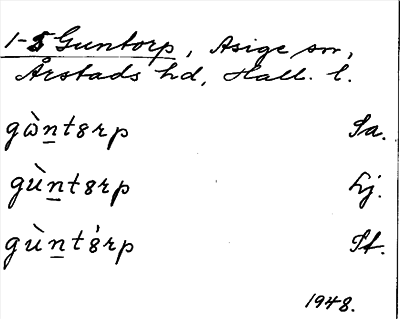 1-5 Guntorp, Asige sn,
Årstads hd, Hall. l.
gὼn̲t8rp Sa.
gùn̲t8rp Lj.
gùn̲t8́rp St.
1948.